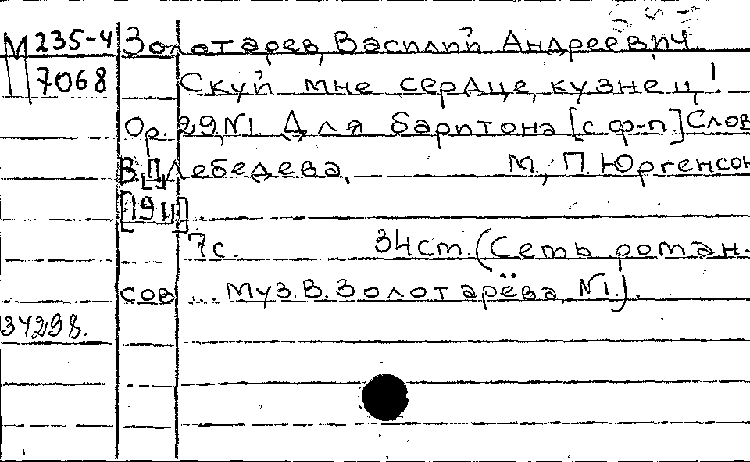 М 235-4 Золотарев, Василий Андреевич
7068 Скуй мне сердце, кузнец!
Op. 29, №1. Для баритона [с ф-п] Слов
В.[Д.] Лебедева. М., П. Юргенсон
[1911]
7с. 34ст. (Семь роман-
сов ... муз. В. Золотарёва, №1.).
37298.